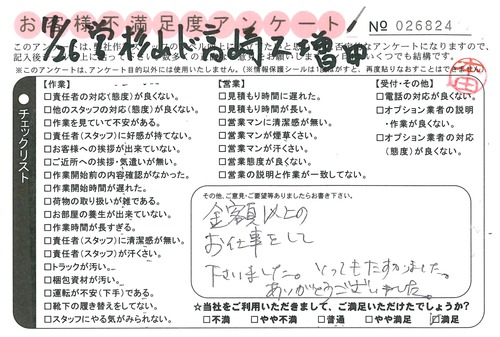 お客様不満足度アンケート
No 026824
11/26
【作業】
□責任者の対応(態度)が良くない。
□他のスタッフの対応(態度)が良くない。
□作業を見ていて不安がある。
□責任者(スタッフ)に好感が持てない。
□お客様への挨拶が出来ていない。
□ご近所への挨拶・気遣いが無い。
□作業開始前の内容確認がなかった。
□作業開始時間が遅れた。
□荷物の取り扱いが雑である。
□お部屋の養生が出来ていない。
□作業時間が長すぎる。
□責任者(スタッフ)に清潔感が無い。
□責任者(スタッフ)が汗くさい。
□トラックが汚い。
□梱包資材が汚い。
□運転が不安(下手)である。
□靴下の履き替えをしてない。
□スタッフにやる気がみられない。
【営業】
□見積もり時間に遅れた。
□見積もり時間が長い。
□営業マンに清潔感が無い。
□営業マンが煙草くさい。
□営業マンが汗くさい。
□営業態度が良くない。
□営業の説明と作業が一致してない。
【受付・その他】
□電話の対応が良くない。
□オプション業者の説明
・作業が良くない。
□オプション業者の対応
(態度)が良くない。
チェックリスト
その他、ご意見・ご要望等ありましたらお書き下さい。
金額以上の
お仕事をして
下さいました。とってもたすかりました。
ありがとうございました。
☆当社をご利用いただきまして、ご満足いただけたでしょうか?
□不満 □やや不満 □普通 □やや満足 ☑満足